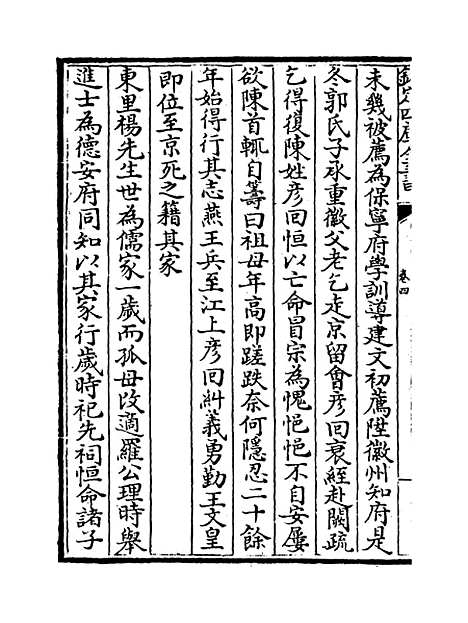 欽定四庫全書
卷四
未幾被薦為保寧府學訓導建文初薦陞徽州知府是
冬郭氏子承重徽父老乞走京留會彥回衰絰赴闕疏
乞得復陳姓彥回恒以亡命冒宗為愧悒悒不自安屢
欲陳首輒自籌曰祖母年高即蹉跌奈何隱忍二十餘
年始得行其志燕王兵至江上彥回糾義勇勤王文皇
即位至京死之籍其家
東里楊先生世為儒家一歲而孤母改適羅公理時舉
進士為德安府同知以其家行歲時祀先祠恒命諸子